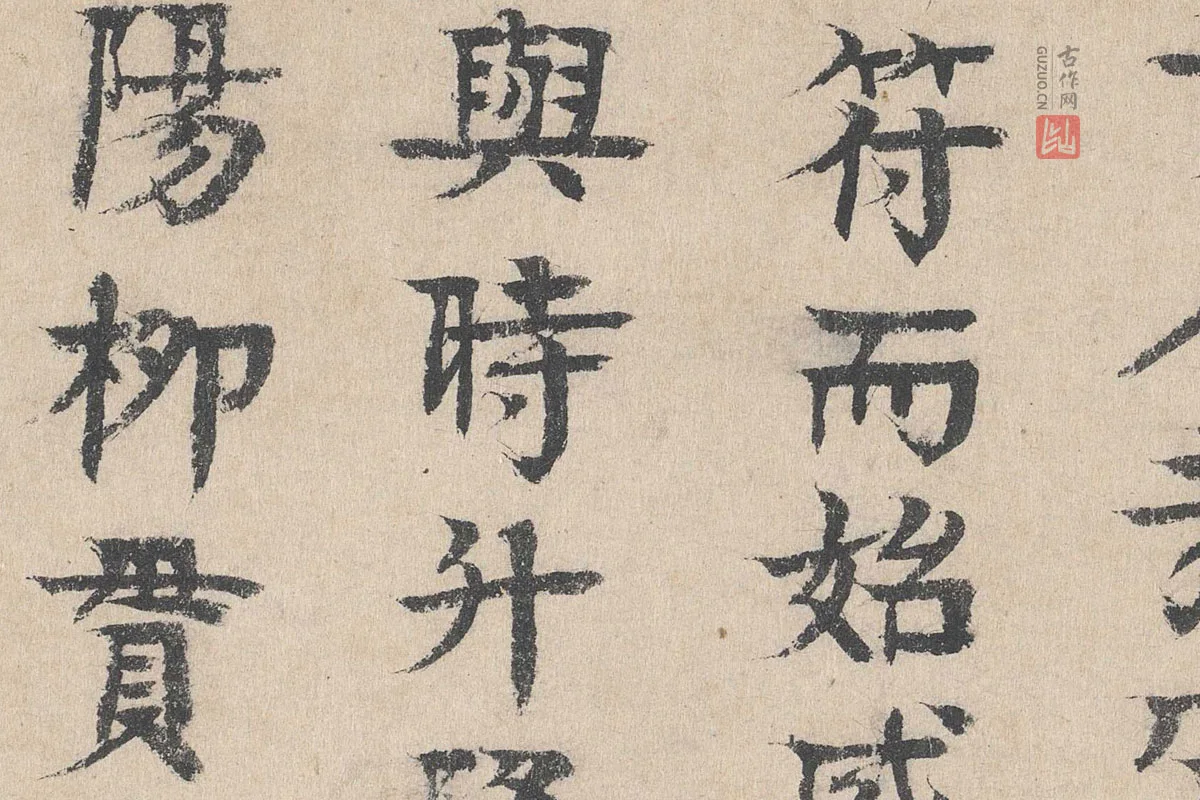 符而始感
與時升
陽柳貫
古作网
GUZUO.CN